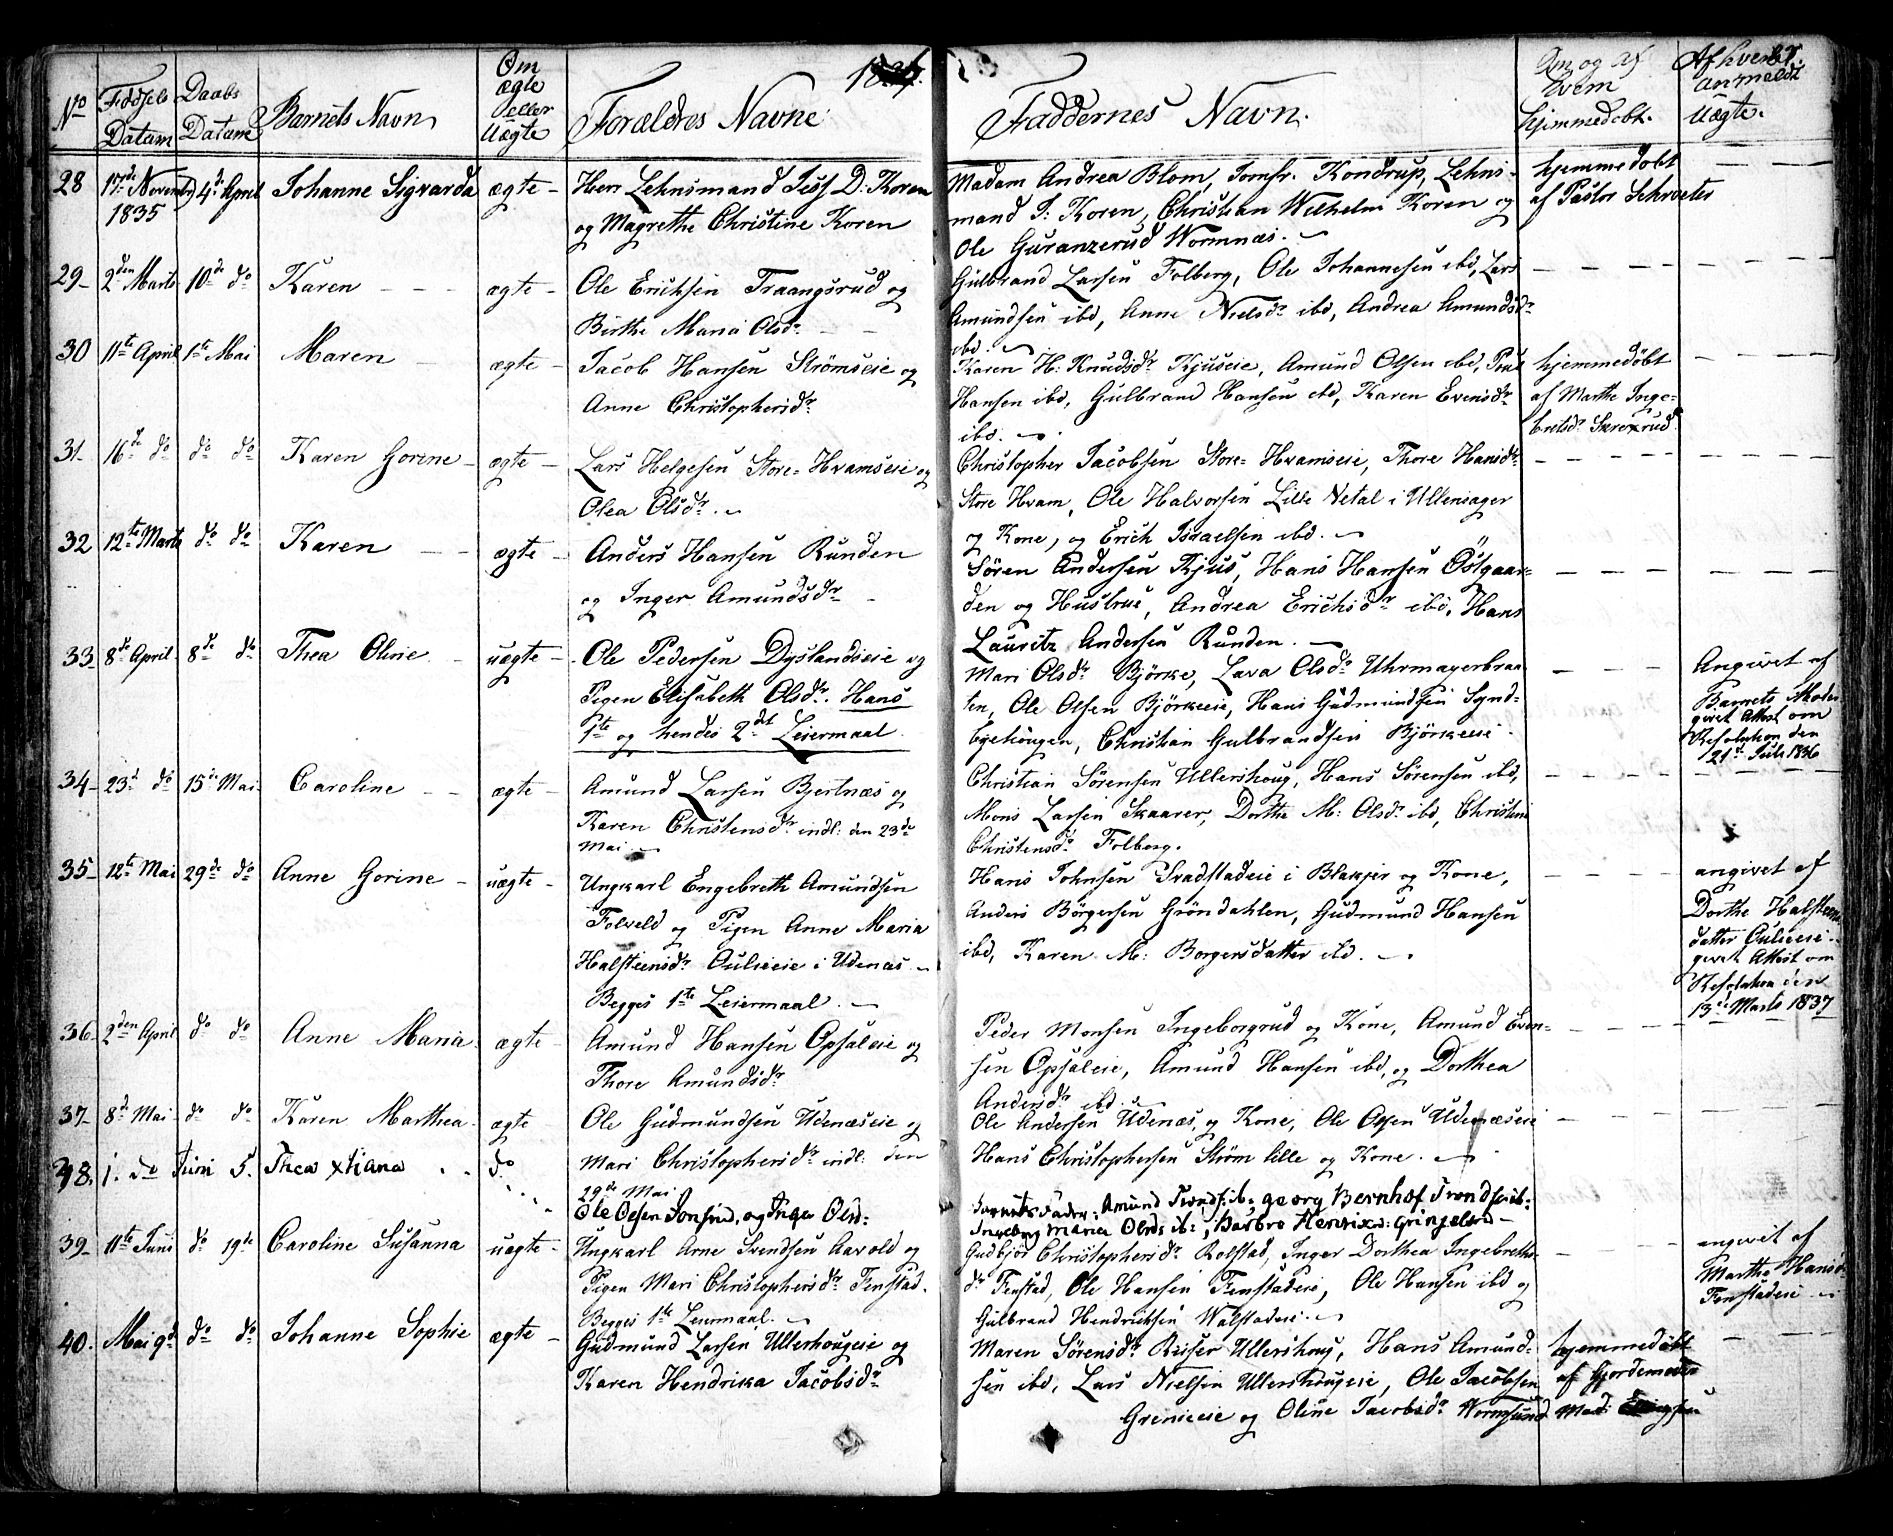 1836.
No
Fødsels Datum
Daabs Datum
Barnets Navn
Om ægte eller Uægte
Forældres Navne
Faddernes Navn.
Om og af hvem hjemmedøbt.
Af hvem anmeldt Uægte.
28 17de Novembr 1835 4de April Johanne Sigvarda ægte - Herr Lehnsmand Jess D: Koren
og Magrethe Christine Koren
Madam Andrea Blom, Jomfr. Kondrup, Lehns-
mand J: Koren, Christian Wilhelm Koren og
Ole Guranzerud Wormnæs.
hjemmedøbt
af Pastor Schroeter
29 2den Marts 10de do Karen ægte - Ole Erichsen Traangsrud og
Birthe Maria Olsdr
Gulbrand Larsen Folberg, Ole Johannesen ibd, Lars
Amundsen ibd, Anne Nielsdr ibd, Andrea Amundsdr
ibd.
30 11te April 1ste Mai Maren ægte - Jacob Hansen Strømseie og
Anne Christophersdr
Karen H: Knudsdr Kjuseie, Amund Olsen ibd, Poul
Hansen ibd, Gulbrand Hansen ibd, Karen Evensdr
ibd.
hjemmedøbt
af Marthe Inge-
bretsdr Skrexrud
31 16de do do do Karen Gorine ægte - Lars Helgesen Store-Hvamseie og
Olea Olsdr.
Christopher Jacobsen Store-Hvamseie, Thore Hansdr
Store Hvam, Ole Halvorsen Lille Netal i Ullensager
og Kone, og Erich Israelsen ibd.
32 12te Marts do do Karen ægte - Anders Hansen Runden
og Inger Amundsdr
Søren Andersen Kjus, Hans Hansen Östgaar-
den og Hustrue, Andrea Erichsdr ibd, Hans
Lauritz Andersen Runden.
33 8de April 8de do Thea Oline uægte - Ole Pedersen Dyslandseie og
Pigen Elisabeth Olsdr. Hans
1te og hendes 2det Leiermaal
Mari Olsdr Björke, Lava Olsdr Uhrmagerbraa-
ten, Ole Olsen Björkeeie, Hans Gudmundsen Synd-
byehougen, Christian Gulbrandsen Björkeeie.
Angivet af
Barnets Moder
givet Attest om
Resolution den
21de Juli 1836
34 23de do 15de Mai Caroline ægte - Amund Larsen Bjertnæs og
Karen Christensdr. indl: den 23de
Mai.
Christian Sörensen Ullershoug, Hans Sörensen ibd,
Mons Larsen Skaarer, Dorthe M: Olsdr ibd, Christine
Christensdr Folberg.
35 12te Mai 29de do Anne Gorine uægte - Ungkarl Engebreth Amundsen
Folveld og Pigen Anne Maria
Halsteensdr Oulieeie i Udenæs.
Begges 1te Leiermaal.
Hans Johnsen Svadstadeie i Blakjer og Kone,
Anders Börgersen Gröndahlen, Gudmund Hansen
ibd, Karen M: Borgersdatter ibd.
angivet af
Dorthe Halsteens-
datter Oulieeie.
givet Attest om
Resolution den
13de Marts 1837
36 2den April do do Anne Maria ægte - Amund Hansen Opsaleie og
Thore Amundsdr
Peder Monsen Ingeborgrud og Kone, Amund Even-
sen Opsaleie, Amund Hansen ibd, og Dorthea
Andersdr ibd.
37 8de Mai do do Karen Marthea ægte Ole Gudmundsen Udenæseie og
Mari Christophersdr indl: den
29de Mai
Ole Andersen Udenæs, og Kone, Ole Olsen Udenæseie
Hans Christophersen Strøm lille og Kone.
38. 1. do Juni 5. Thea Xtiana do Ole Olsen Jonsrud, og Inger Olsd:
Barnets Fader, Amund Trondsen ib: georg Bernhof Trondsen ib:
Ingeborg Maria Olsd: ib:, Barbro Henrixd: Grinjelsrd
39 11te Juni do 19de Caroline Susanna uægte - Ungkarl Arne Svendsen Aavold og
Pigen Mari Christophersdr Fenstad.
Begges 1te Leiermaal.
Gudbjör Christophersdr Rolstad, Inger Dorthea Ingebreths-
dr Fenstad, Ole Hansen Fenstadeie, Ole Hansen ibd og
Gulbrand Hendrichsen Walstadeie.
angivet af
Marthe Hansdr
Fenstadeie
40. Mai 9de do do Johanne Sophie ægte - Gudmund Larsen Ullershougeie og
Karen Hendrika Jacobsdr
Maren Sörensdr Reiser Ullershoug, Hans Amund-
sen ibd, Lars Nielsen Ullershougeie, Ole Jacobsen
Grenieeie og Oline Jacobsdr Wormsund
hjemmedøbt
af Gjordemoder
Mad: